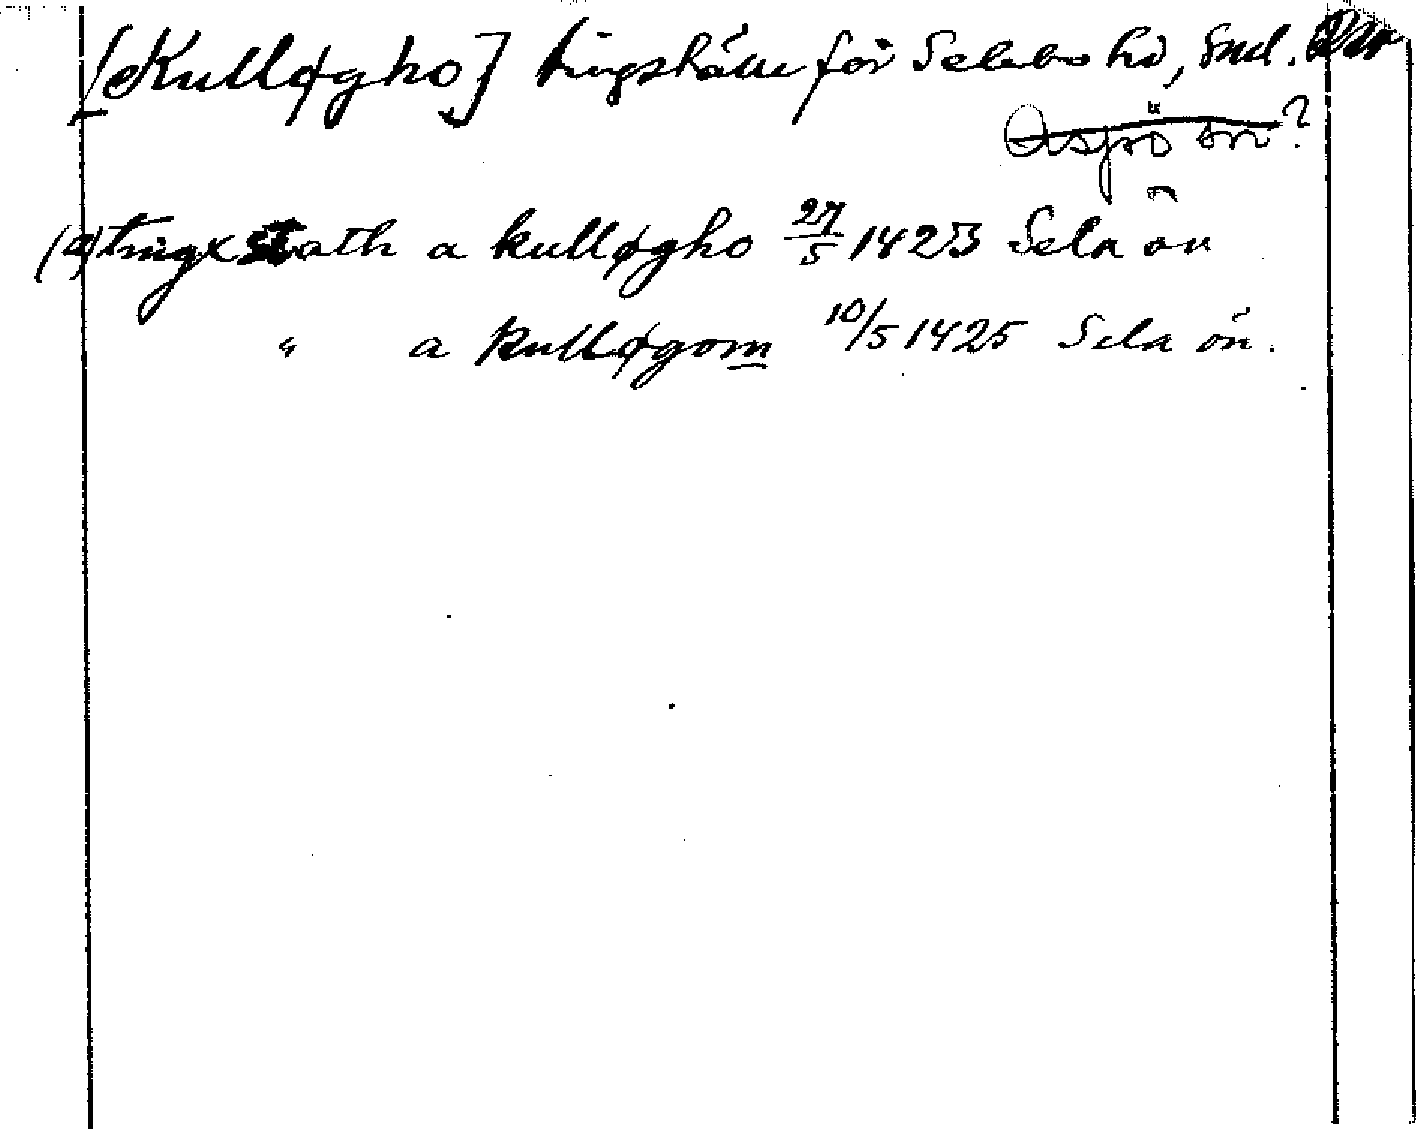 [Kulløgho] tingställe för Selebo hd, Sml.
Aspö ön?
(a) tingx stath a kulløgho 27/5 1423 Sela ön
" a kulløgom 10/5 1425 Sela ön.